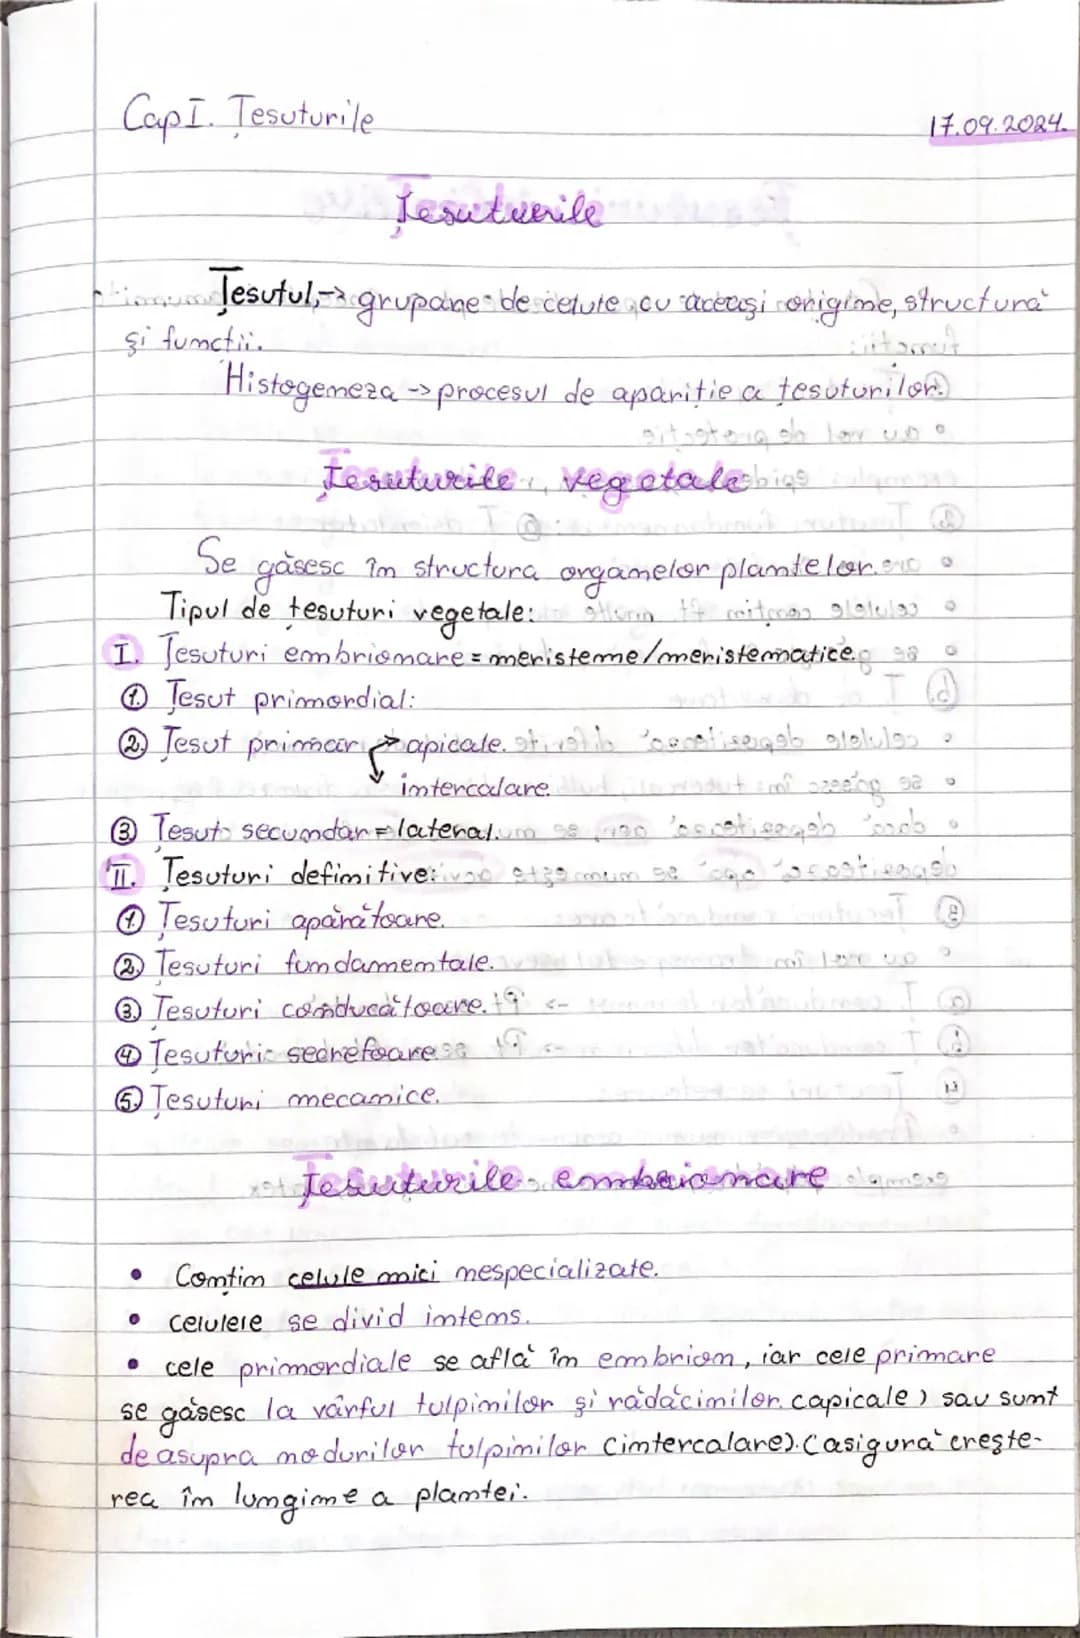 Cap I. Țesuturile
17.09.2024.
Țesuturile
Țesutul, → grupare de celule cu aceeași origine, structură
și funcții.
Histogeneza → procesul de apariție a țesuturilor.
Țesuturile vegetale
Se găsesc în structura organelor plantelor.
Tipul de țesuturi vegetale:
I. Țesuturi embrionare = meristeme/meristematice.
1. Țesut primordial:
2. Țesut primar → apicale.
intercalare.
3. Țesut secundar = lateral.
II. Țesuturi definitive:
1. Țesuturi apărătoare.
2. Țesuturi fundamentale.
3. Țesuturi conducătoare.
4. Țesuturi secretoare
5. Țesuturi mecanice.
Țesuturile embrionare
• Conțin celule mici nespecializate.
• celulele se divid intens.
• cele primordiale se află în embrion, iar cele primare
se găsesc la vârful tulpinilor și rădăcinilor (apicale) sau sunt
deasupra nodurilor tulpinilor (intercalare). (asigură crește-
rea în lungime a plantei.